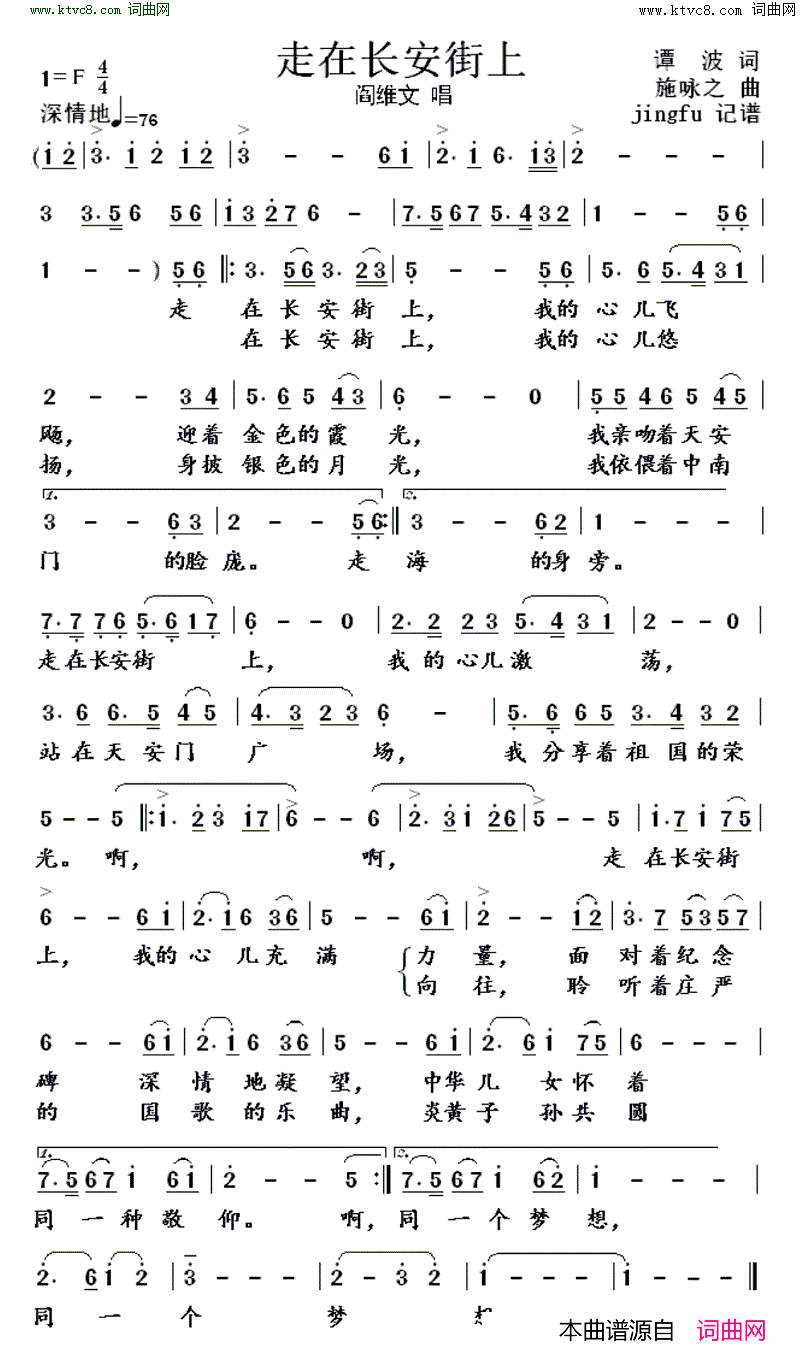 www.ktvc8.com 词曲网 www.ktvc8.com 词曲网
走在长安街上
1=F 4/4 谭 波 词
阎维文 唱 施咏之 曲
深情地♩=76 jingfu 记谱
(i 2 | 3. i 2 i 2 | 3 - - 6 i | 2. i 6. i 3 | 2 - - |
3 3. 5 6 5 6 | i 3 2 7 6 - | 7. 5 6 7 5. 4 3 2 | 1 - - 5 6 |
1 - - ) 5 6 |: 3. 5 6 3. 2 3 | 5 - - 5 6 | 5. 6 5. 4 3 1 |
走 在长安街 上, 我的心儿飞
在长安街 上, 我的心儿悠
2 - - 3 4 | 5. 6 5 4 3 | 6 - - 0 | 5 5 4 6 5 4 5 |
飏, 迎着金色的霞 光, 我亲吻着天安
扬, 身披银色的月 光, 我依偎着中南
1. 2.
3 - - 6 3 | 2 - - 5 6 :| 3 - - 6 2 | 1 - - - |
门 的脸庞。 走 海 的身旁。
7. 7 7 6 5. 6 1 7 | 6 - - 0 | 2. 2 2 3 5. 4 3 1 | 2 - - 0 |
走在长安街 上, 我的心儿激 荡,
3. 6 6. 5 4 5 | 4. 3 2 3 6 - | 5. 6 6 5 3. 4 3 2 |
站在天安门 广 场, 我分享着祖国的荣
5 - - 5 |: i. 2 3 i 7 | 6 - - 6 | 2. 3 i 2 6 | 5 - - 5 | i. 7 i 7 5 |
光。啊, 啊, 走 在长安街
6 - - 6 i | 2. i 6 3 6 | 5 - - 6 i | 2 - - i 2 | 3. 7 5 3 5 7 |
上, 我的心儿充 满 力 量, 面 对着纪念
向 往, 聆 听着庄严
6 - - 6 i | 2. i 6 i 3 6 | 5 - - 6 i | 2. 6 i 7 5 | 6 - - - |
碑 深 情 地凝 望, 中华儿 女怀着
的 国 歌 的乐 曲, 炎黄子 孙共圆
1. 2.
7. 5 6 7 i 6 i | 2 - - 5 :| 7. 5 6 7 i 6 2 | i - - - |
同 一种敬 仰。 啊, 同 一个梦 想,
2. 6 i 2 | 3 - - - | 2 - 3 2 | i - - - | i - - - ‖
同 一 个 梦
本曲谱源自 词曲网